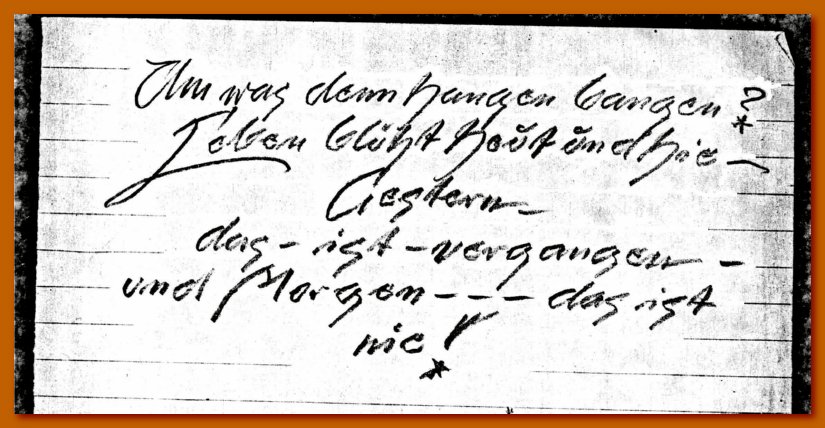 Um was denn hangen bangen?
Leben blüht heut und hie –
Gestern –
das – ist – vergangen –
und Morgen - - - das ist
nie!